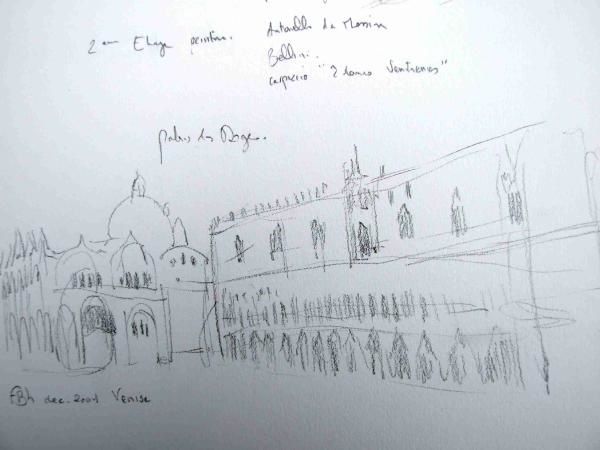 2em Etage peinture.
Antonello da Messina
Bellini.
carpaccio "2 Dames Vénitiennes"
palais des Doges.
dec. 2001 Venise